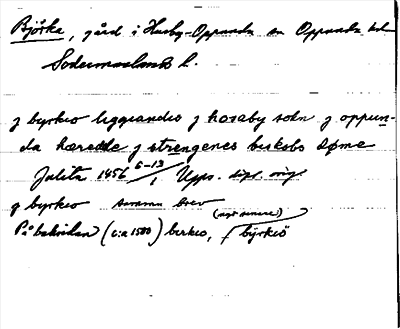 Björke, gård i Husby-Oppunda sn Oppunda hd
Södermanlands l.
j byrkeo liggiandes j hosaby sokn j oppun-
da hærædde j strengenes biskobs døme
Julita 1456 6-13/1 Upps. dipl. orig.
j byrkeo samma brev
(något senare)
På baksidan (c:a 1500) birkeo, / byrkiö